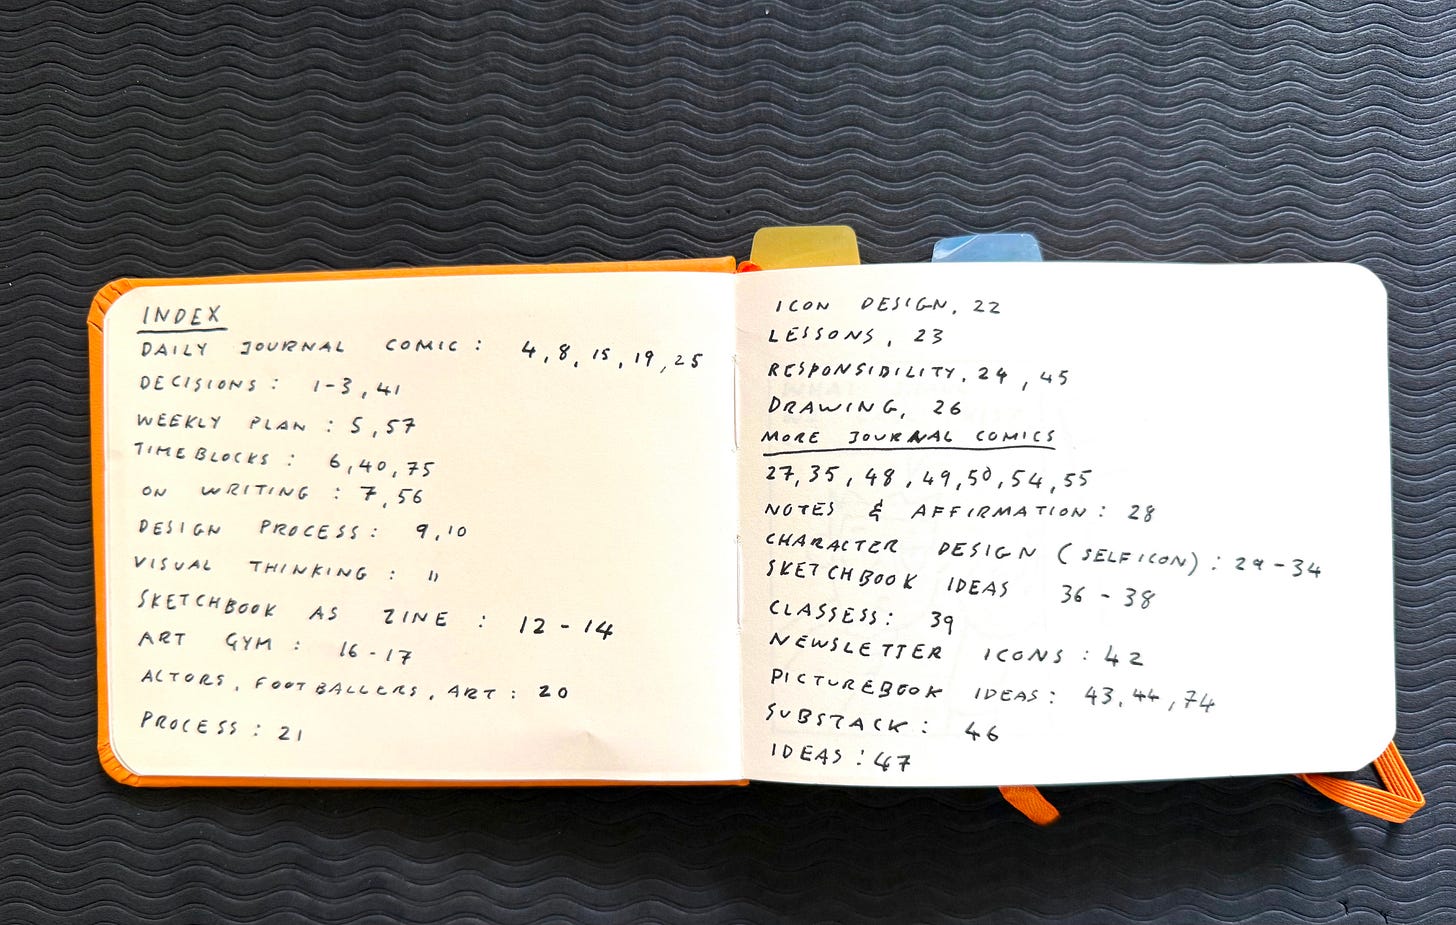 INDEX
DAILY JOURNAL COMIC : 4, 8, 15, 19, 25
DECISIONS : 1-3, 41
WEEKLY PLAN : 5, 57
TIMEBLOCKS : 6, 40, 75
ON WRITING : 7, 56
DESIGN PROCESS : 9, 10
VISUAL THINKING : 11
SKETCHBOOK AS ZINE : 12 - 14
ART GYM : 16 - 17
ACTORS, FOOTBALLERS, ART : 20
PROCESS : 21
ICON DESIGN, 22
LESSONS, 23
RESPONSIBILITY, 24, 45
DRAWING, 26
MORE JOURNAL COMICS
27, 35, 48, 49, 50, 54, 55
NOTES & AFFIRMATION : 28
CHARACTER DESIGN (SELF ICON) : 29 - 34
SKETCHBOOK IDEAS 36 - 38
CLASSESS : 39
NEWSLETTER ICONS : 42
PICTUREBOOK IDEAS : 43, 44, 74
SUBSTACK : 46
IDEAS : 47